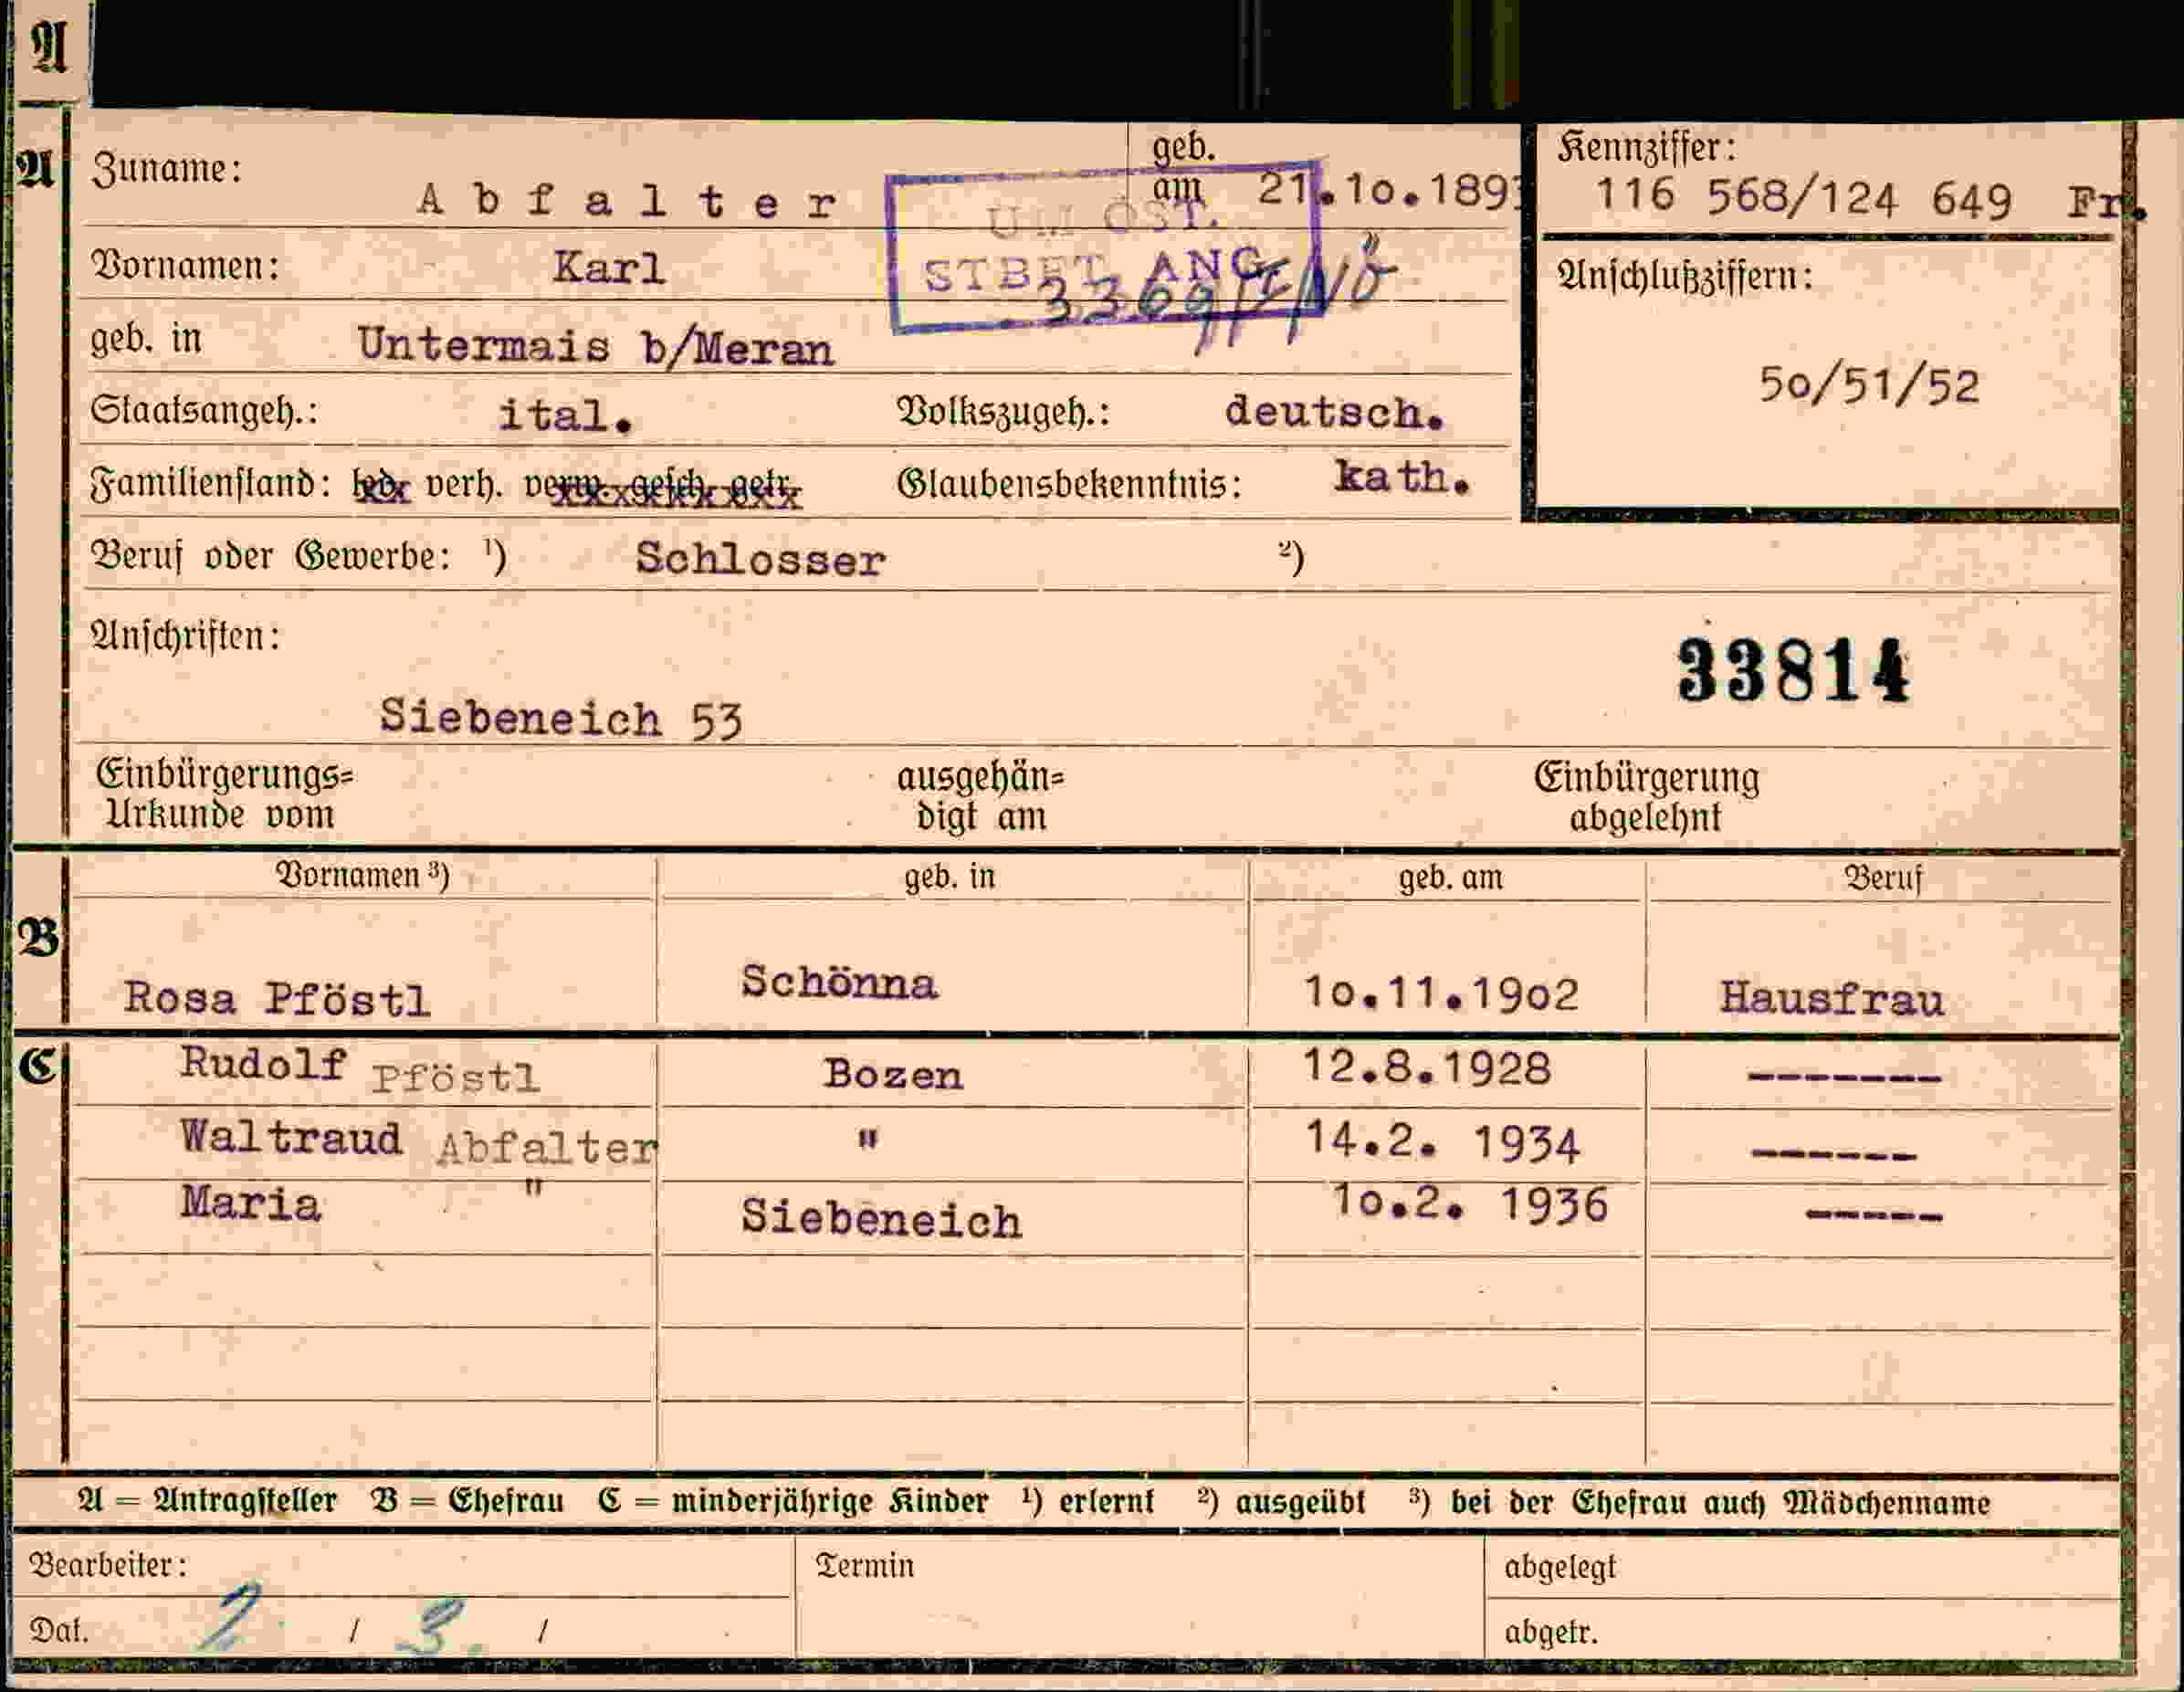 A
A Zuname: Abfalter geb. am 21.10.1893
Kennziffer: 116 568/124 649 Fr.
UM ÖST.
STBET. ANG.
3369
Vornamen: Karl
Anschlußziffern:
geb. in Untermais b/Meran
50/51/52
Staatsangeh.: ital. Volkszugeh.: deutsch.
Familienstand: led. verh. verw. gesch. getr. Glaubensbekenntnis: kath.
Beruf oder Gewerbe: ¹) Schlosser ²)
Anschriften:
33814
Siebeneich 53
Einbürgerungs= ausgehän= Einbürgerung
Urkunde vom digt am abgelehnt
Vornamen ³) geb. in geb. am Beruf
B Rosa Pföstl Schönna 10.11.1902 Hausfrau
C Rudolf Pföstl Bozen 12.8.1928 -------
Waltraud Abfalter " 14.2. 1934 ------
Maria " Siebeneich 10.2. 1936 -----
A = Antragsteller B = Ehefrau C = minderjährige Kinder ¹) erlernt ²) ausgeübt ³) bei der Ehefrau auch Mädchenname
Bearbeiter: Termin abgelegt
Dat. 2 / 3. / abgetr.